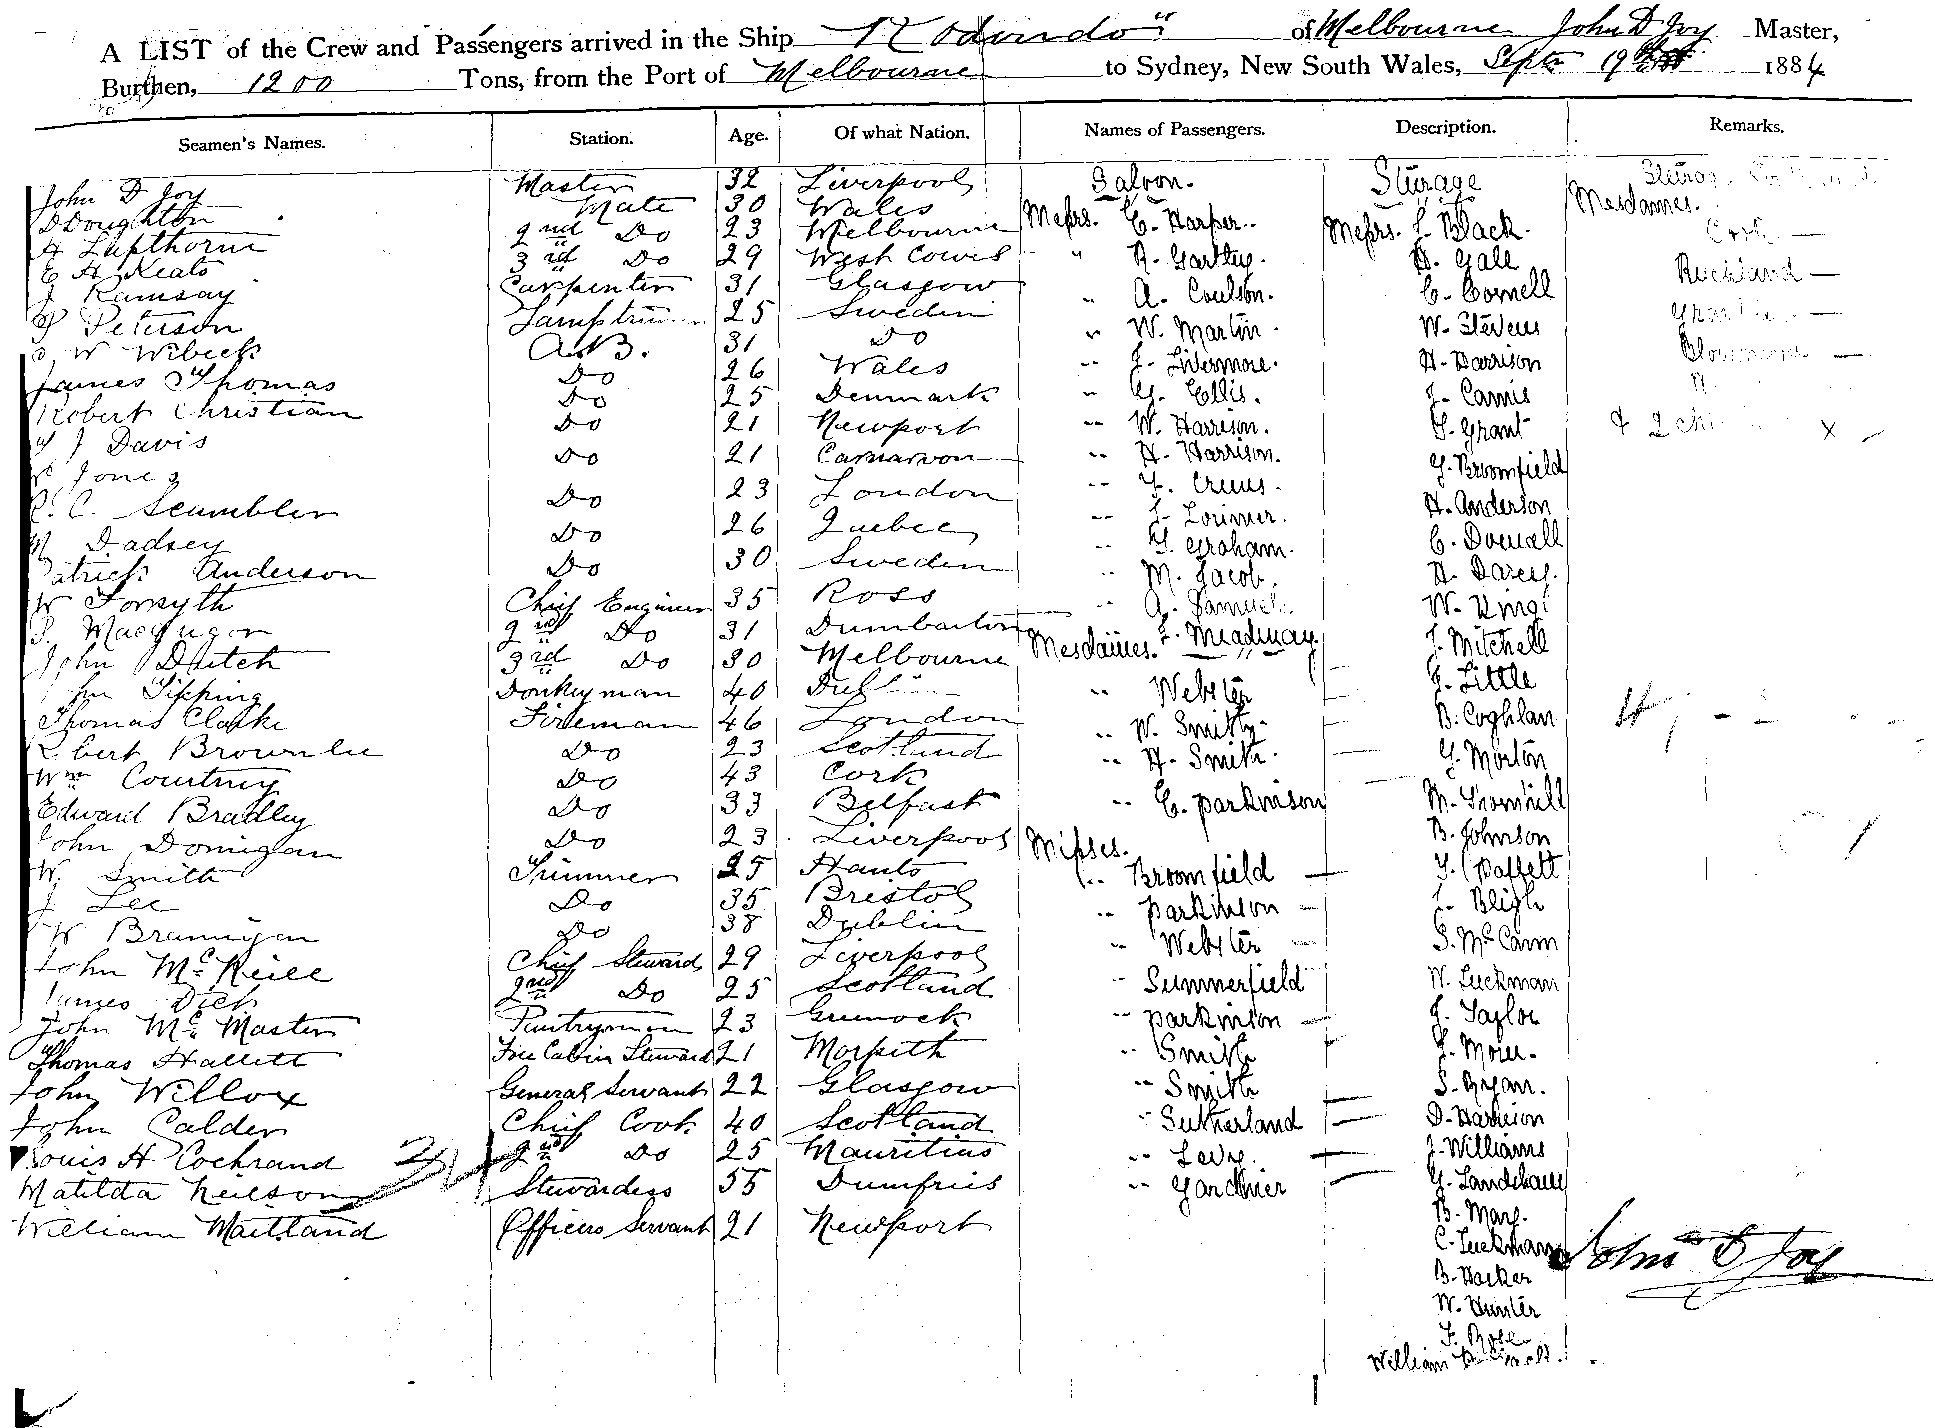 A LIST of the Crew and Passengers arrived in the Ship "Rodondo" of Melbourne John D Joy Master,
Burthen, 1200 Tons, from the Port of Melbourne to Sydney, New South Wales, Septr 19th 1884
Seamen's Names. Station. Age. Of what Nation. Names of Passengers. Description. Remarks.
John D Joy Master 32 Liverpool
D Doughton Mate 30 Wales
A Lapthorne 2nd Do 23 Melbourne
E H Keats 3rd Do 29 West Cowes
J Ramsay Carpenter 31 Glasgow
P Peterson Lamptrimmer 25 Sweden
W Wibeck A.B. 31 Do
James Thomas Do 26 Wales
Robert Christian Do 25 Denmark
J Davis Do 21 Newport
Jones Do 21 Carnarvon
R. C. Scumbler Do 23 London
Dadsey Do 26 Quebec
Patrick Anderson Do 30 Sweden
W Forsyth Chief Engineer 35 Ross
P. Macgregor 2nd Do 31 Dumbarton
John Deitch 3rd Do 30 Melbourne
John Tipping Donkeyman 40 Dublin
Thomas Clarke Fireman 46 London
Robert Brownlee Do 23 Scotland
Wm Courtney Do 43 Cork
Edward Bradley Do 33 Belfast
John Donigan Do 23 Liverpool
W. Smith Trimmer 25 Hants
J Lee Do 35 Bristol
W Brannigan Do 38 Dublin
John McNeill Chief Steward 29 Liverpool
James Dick 2nd Do 25 Scotland
John McMaster Pantryman 23 Greenock
Thomas Hallett Fore Cabin Steward 21 Morpeth
John Willox General Servant 22 Glasgow
John Calder Chief Cook 40 Scotland
Louis H Cochrand 2nd Do 25 Mauritius
Matilda Neilson Stewardess 55 Dumfries
William Maitland Officers Servant 21 Newport
Saloon.
Messrs. E. Harper.
" R. Gartley.
" A. Coulson.
" W. Martin.
" J. Livermore.
" G. Ellis.
" W. Harrison.
" H. Harrison.
" Crews.
" J. Lorimer.
" G. Graham.
" M. Jacob.
" A. Samuels.
Mesdames.
" Webster
" W. Smith
" H. Smith.
" E. Parkinson
Misses.
" Broomfield
" Parkinson
" Webster
" Summerfield
" Parkinson
" Smith
" Smith
" Sutherland
" Levy.
" Gardiner
Sturage
Messrs. L. Black.
H. Gale
C. Cornell
W. Stevens
H. Harrison
J. Camis
S. Grant
G. Broomfield
H. Anderson
C. Dowall
H. Darcy.
W. King
J. Mitchell
J. Little
B. Coghlan
G. Morton
M.
B. Johnson
L. Bligh
S. McCann
W. Luckman
J. Taylor
J. Moier.
S. Bryan.
D. Harrison
J. Williams
G.
B. Mary.
C. Luckman
B. Harker
W. Hunter
F. Rose
William
Mesdames.
Cook
Buckland
& 2 x
John D Joy